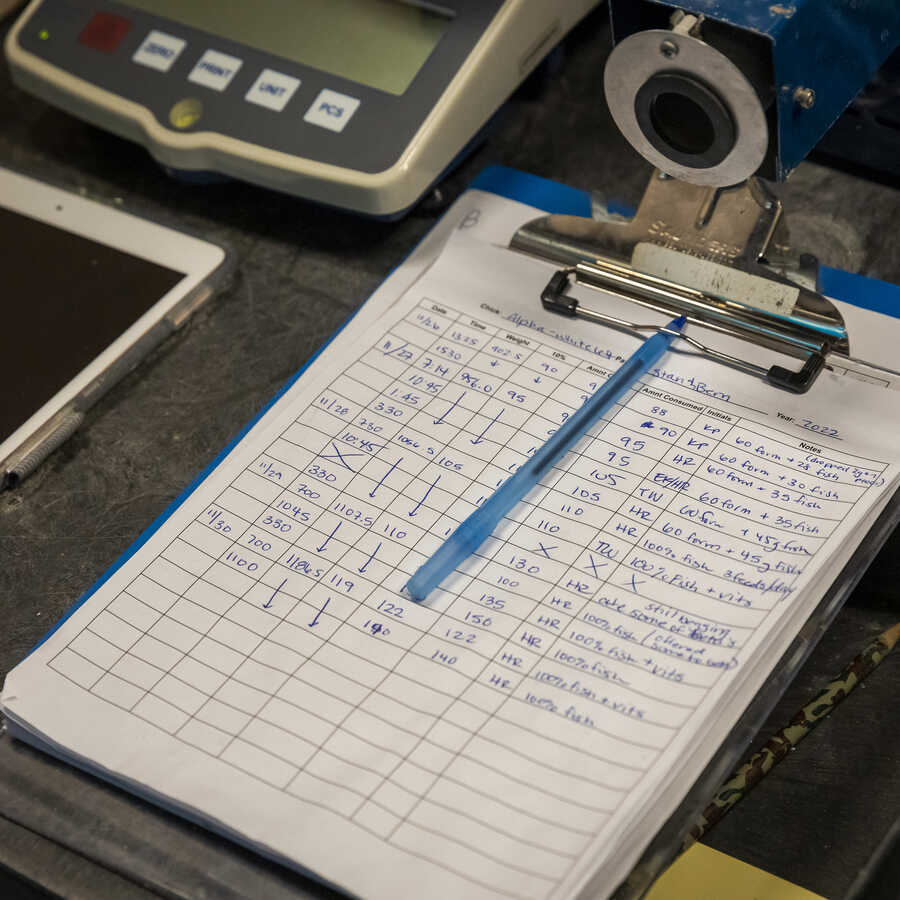 ZERO PRINT UNIT PCS
B
Chick: Alpha - White
Year: 2022
Date Time Weight 10% Amnt Consumed Initials Notes
11/26 1325 902.5 90 88 KP 60 form + 28 fish
1530 90 KP 60 form + 30 fish
11/27 7.14 956.0 95 95 HR 60 form + 35 fish
10.45 95 60 form + 35 fish
1.45 105 TW 60 form + 45g fish
330 105 HR 60 form + 45g fish
11/28 730 1056.5 105 110 HR 100% fish 3 feeds/day
10:45 110 TW 100% fish + vits
X X X X
330 130 HR still begging
11/29 700 1107.5 110 100 HR ate some of
1045 135 HR 100% fish (offered
330 150 HR 100% fish + vits
100% fish
11/30 700 1186.5 119 122 122 HR 100% fish + vits
1100 140 140 HR 100% fish